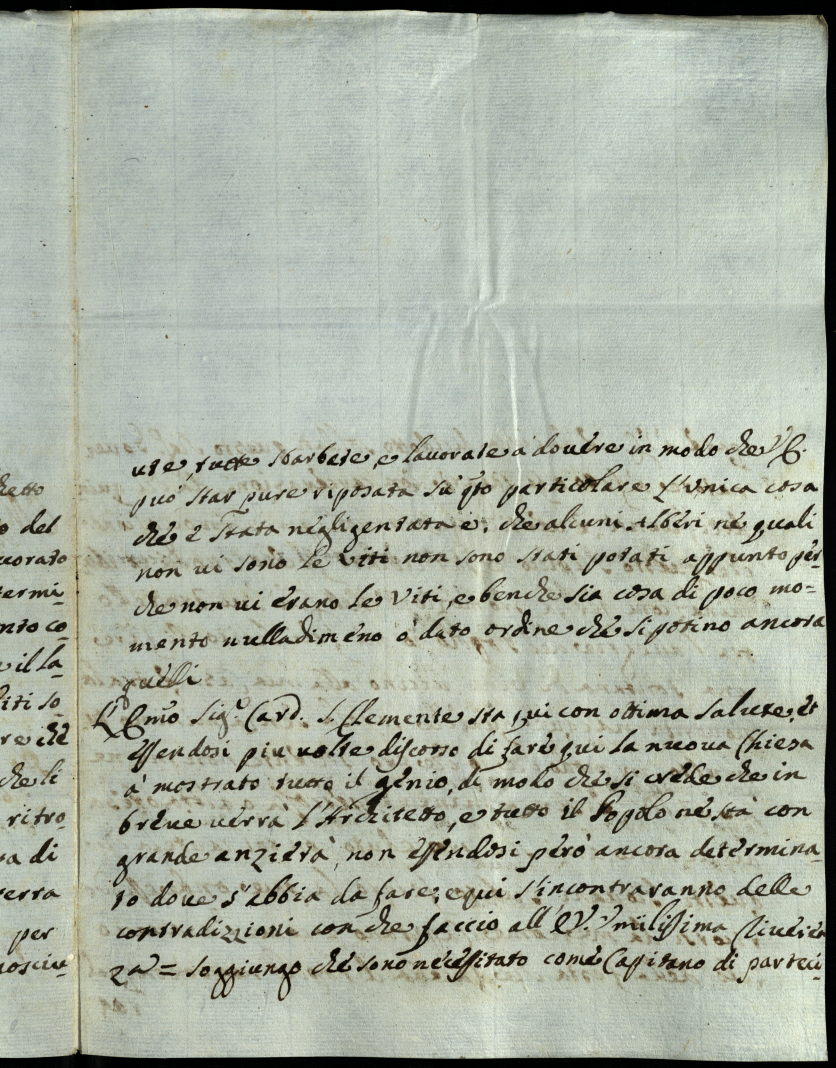 hetto
o del
vorato
termi-
nto co-
e il la-
Viti so-
re chè
che li
ritro-
ra di
verra
per
nosciu-
ute, tutte sbarbate, e lavorate a dovére in modo che V.E.
può star pure riposata su q.to particolare l'unica cosa
ché è stata négligentata è, che alcuni Alberi né quali
non vi sono le Viti non sono stati potati appunto pér-
che non vi érano le Viti, e benche sia cosa di poco mo=
mento nulladiméno ò dato ordine ché si potino ancora
quélli
L'Emo Sig.r Card. S. Clemente sta qui con ottima salute, et
essendosi piu volte discorso di faré qui la nuova Chiesa
à mostrato tutto il génio, di modo ché si créde che in
bréve uérrà l'Architetto, e tutto il Popolo né stà con
grande anziétà, non essendosi però ancora détérmina-
to dove s'abbia da fare, e qui s'incontraranno delle
contradizzioni con che faccio all'E.V. Umilissima (riuéren
za = soggiungo ché sono nécéssitato comé Capitano di parteci-